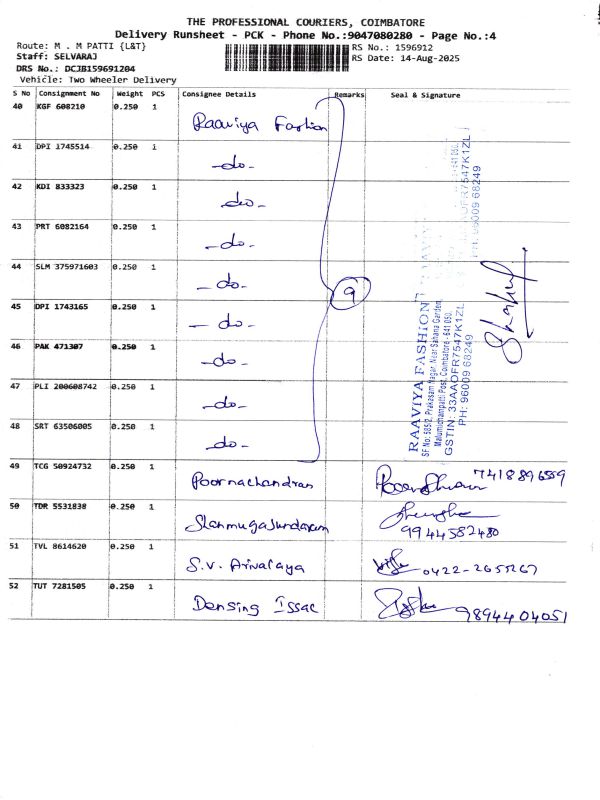 THE PROFESSIONAL COURIERS, COIMBATORE
Delivery Runsheet - PCK - Phone No.:9047080280 - Page No.:4
Route: M . M PATTI {L&T}
RS No.: 1596912
Staff: SELVARAJ
RS Date: 14-Aug-2025
DRS No.: DCJB159691204
Vehicle: Two Wheeler Delivery
S No Consignment No Weight PCS Consignee Details Remarks Seal & Signature
40 KGF 608210 0.250 1 Raaviya Fashion
41 DPI 1745514 0.250 1 -do-
42 KDI 833323 0.250 1 -do-
43 PRT 6082164 0.250 1 -do-
44 SLM 375971603 0.250 1 -do-
9
45 DPI 1743165 0.250 1 -do-
46 PAK 471307 0.250 1 -do-
47 PLI 200608742 0.250 1 -do-
48 SRT 63506005 0.250 1 -do-
RAAVIYA FASHION
SF No: 585/2, Prakasam Nagar, Near Sahana Garden,
Malumichampatti Post, Coimbatore - 641 050.
GSTIN: 33AAOFR7547K1ZL
PH: 96009 68249
49 TCG 50924732 0.250 1 Poornachandran 7418896559
50 TDR 5531838 0.250 1 Shanmugasundaram
9944582480
51 TVL 8614620 0.250 1 S.V. Arivalaya 0422-2655267
52 TUT 7281505 0.250 1 Densing Issac 9894404051